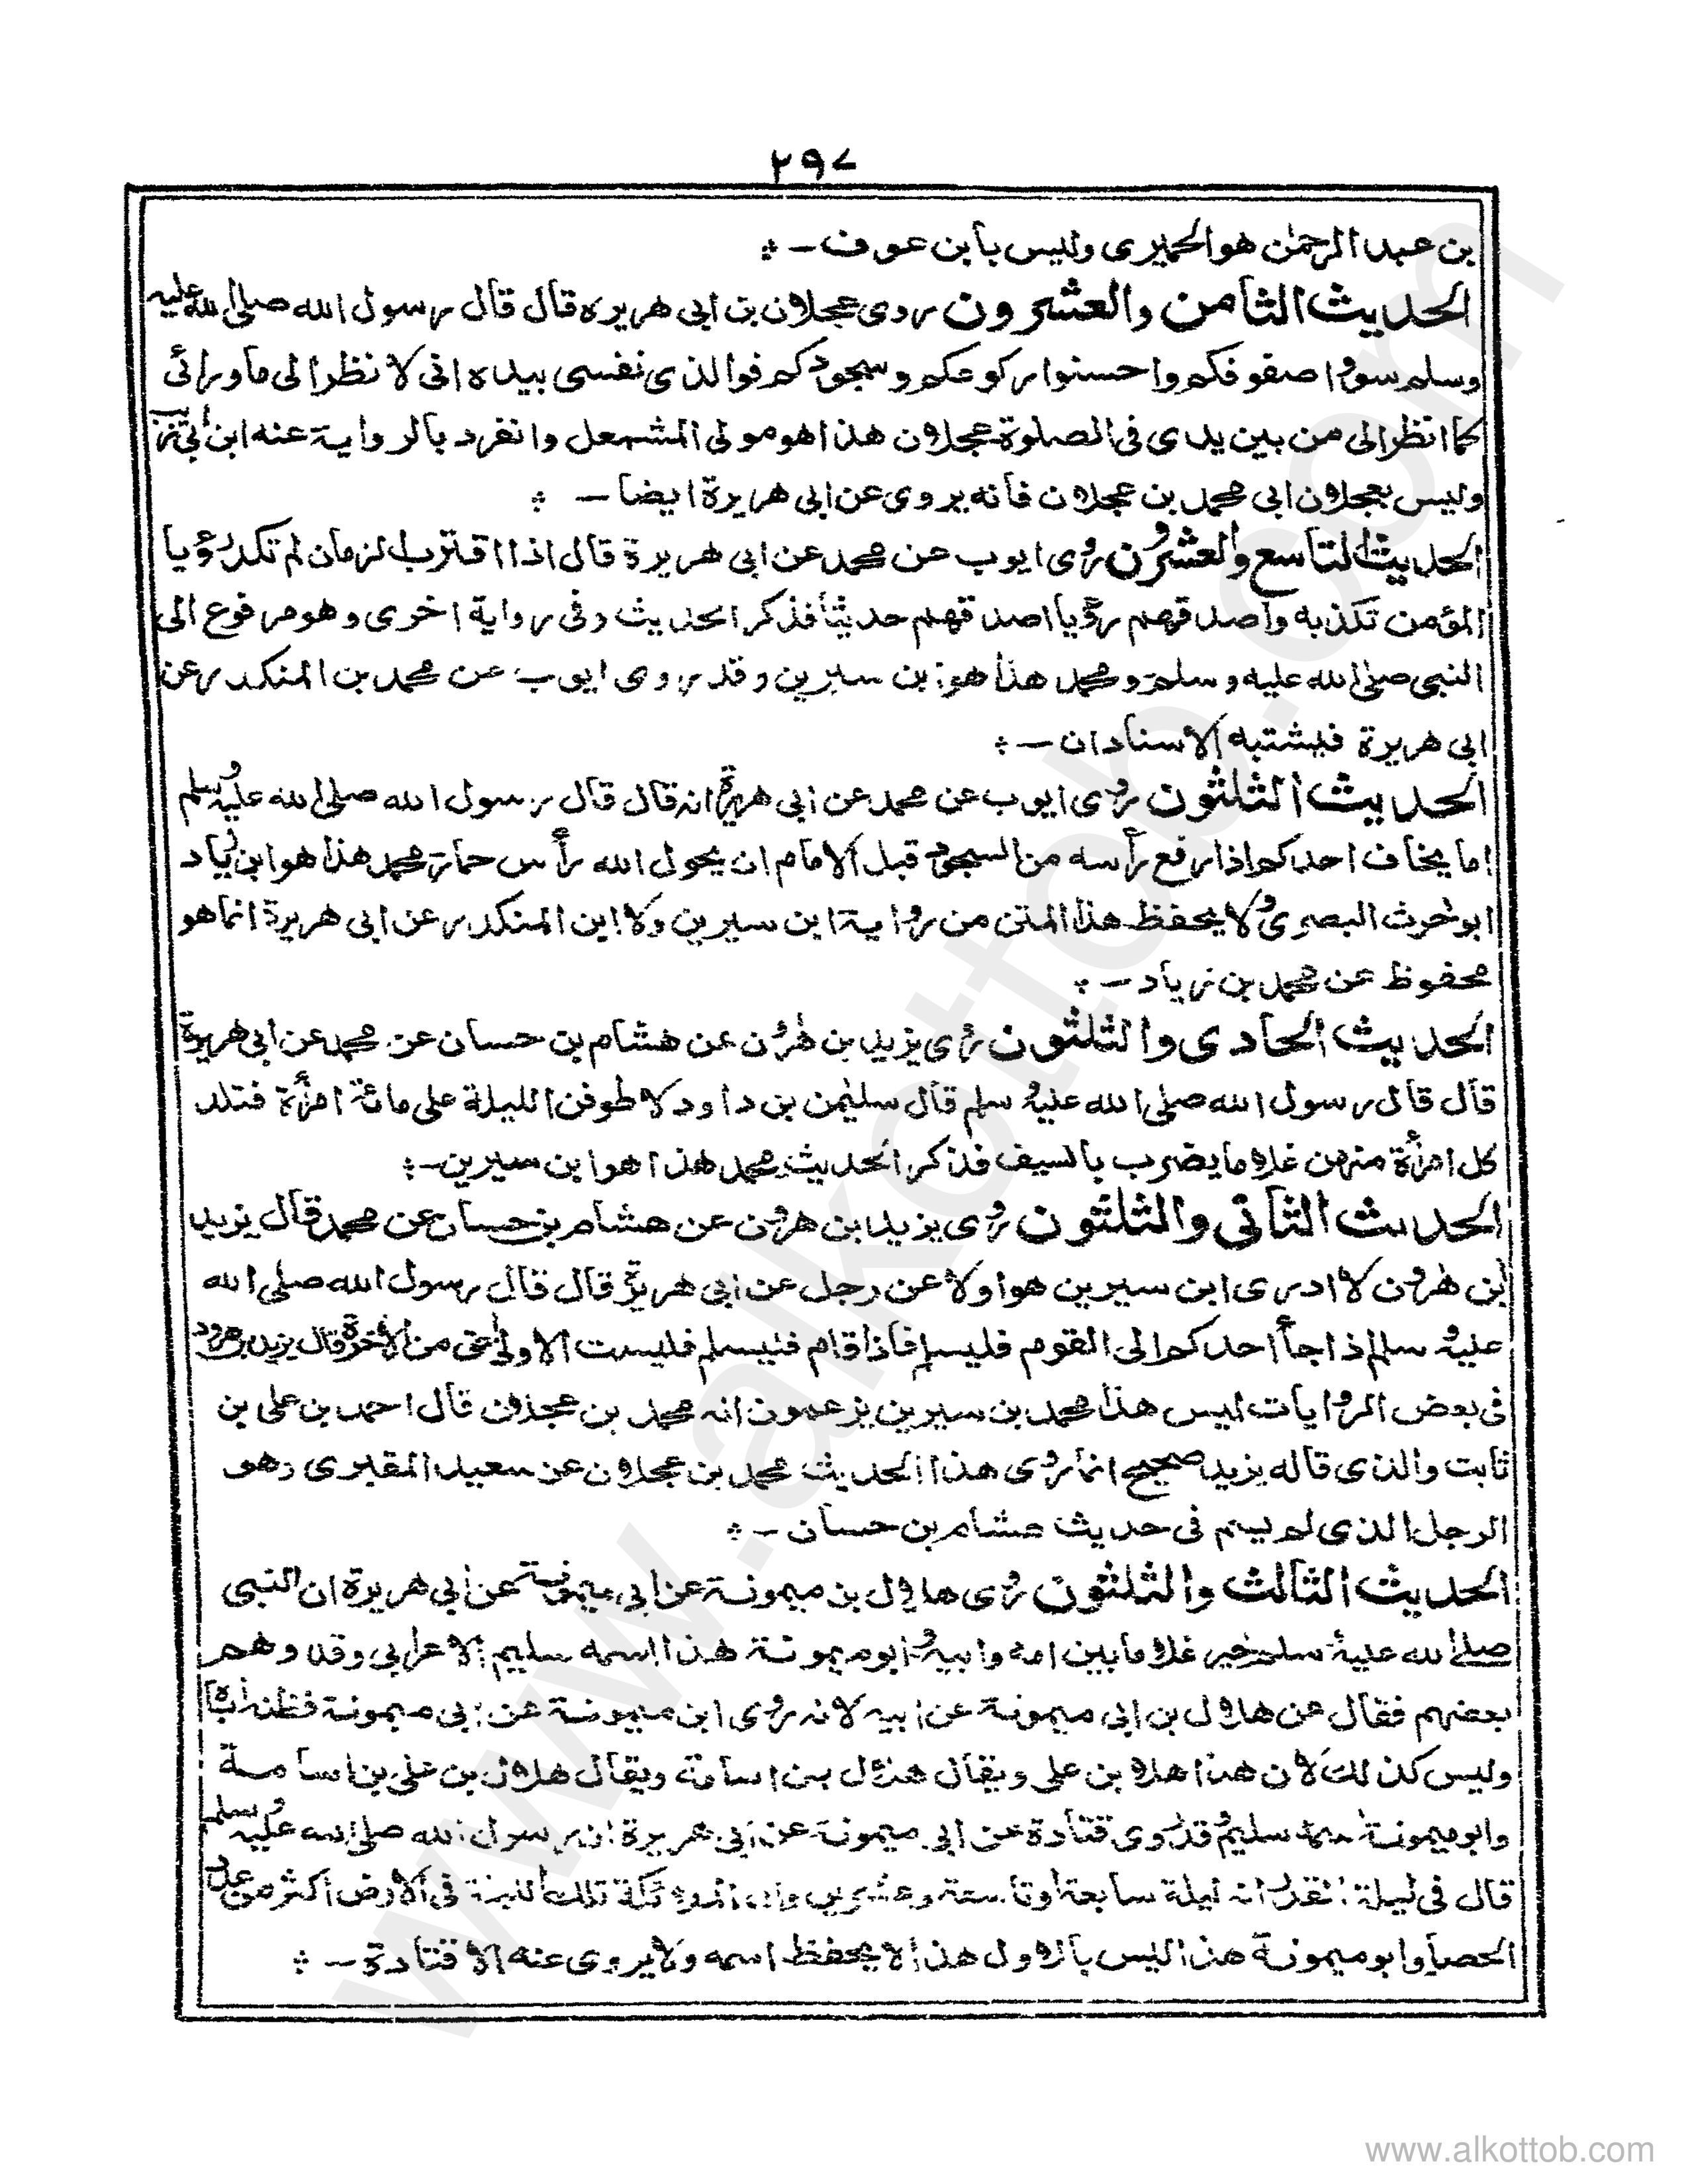 ٢٩٧
بن عبد الرحمٰن هو الحميرى وليس بابن عوف -
الحديث الثامن والعشرون روى عجلان بن ابى هريره قال قال رسول الله صلى الله عليه
وسلم سووا صفوفكم واحسنوا ركوعكم وسجودكم فوالذى نفسى بيده انى لا نظر الى ما ورائى
كما انظر الى من بين يدى فى الصلوة عجلان هذا هو مولى المشمعل وانفرد بالرواية عنه ابن ابى
وليس بعجلان ابى محمد بن عجلان فانه يروى عن ابى هريرة ايضا -
الحديث التاسع والعشرون روى ايوب عن محمد عن ابى هريرة قال اذا اقترب الزمان لم تكد رؤيا
المؤمن تكذبه واصدقهم رؤيا اصدقهم حديثا فذكر الحديث وفى رواية اخرى وهو مرفوع الى
النبى صلى الله عليه وسلم ومحمد هذا هو بن سيرين وقد روى ايوب عن محمد بن المنكدر عن
ابى هريرة فيشتبه الاسنادان -
الحديث الثلثون روى ايوب عن محمد عن ابى هريرة انه قال قال رسول الله صلى الله عليه وسلم
اما يخاف احدكم اذا رفع رأسه من السجود قبل الامام ان يحول الله رأس حمار محمد هذا هو ابن زياد
ابو حرث البصرى ولا يحفظ هذا المتن من رواية ابن سيرين ولا ابن المنكدر عن ابى هريرة انما هو
محفوظ عن محمد بن زياد -
الحديث الحادى والثلثون روى يزيد بن هرون عن هشام بن حسان عن محمد عن ابى هريرة
قال قال رسول الله صلى الله عليه وسلم قال سليمن بن داود لاطوفن الليلة على مائة امرأة فتلد
كل امرأة منهن غلاما يضرب بالسيف فذكر الحديث محمد هذا هو ابن سيرين -
الحديث الثانى والثلثون روى يزيد بن هرون عن هشام بن حسان عن محمد قال يزيد
بن هرون لا ادرى ابن سيرين هو اولا عن رجل عن ابى هريرة قال قال رسول الله صلى الله
عليه وسلم اذا جاأ احدكم الى القوم فليسلم فاذا قام فليسلم فليست الاولى احق من الأخرة قال يزيد بن هرون
فى بعض الروايات ليس هذا محمد بن سيرين يزعمون انه محمد بن عجلان قال احمد بن على بن
ثابت والذى قاله يزيد صحيح انما روى هذا الحديث محمد بن عجلان عن سعيد المقبرى وهو
الرجل الذى لم يسم فى حديث هشام بن حسان -
الحديث الثالث والثلثون روى هلال بن ميمونة عن ابى ميمونة عن ابى هريرة ان النبى
صلى الله عليه وسلم خير غلاما بين امه وابيه وابو ميمونة هذا اسمه سليم الاعرابى وقد وهم
بعضهم فقال عن هلال بن ابى ميمونة عن ابيه لانه روى ابن ميمونة عن ابى ميمونة فظنه اباه
وليس كذلك لان هذا هلال بن على ويقال هلال بن اسامة ويقال هلال بن على بن اسامة
وابو ميمونة سليم وقد روى قتادة عن ابى ميمونة عن ابى هريرة ان رسول الله صلى الله عليه وسلم
قال فى ليلة القدر انه ليلة سابعة او تاسعة وعشرين وان الملائكة تلك الليلة فى الارض اكثر من عدد
الحصا وابو ميمونة هذا ليس بالاول هذا لا يحفظ اسمه ولا يروى عنه الا قتادة -
www.alkottob.com
www.alkottob.com